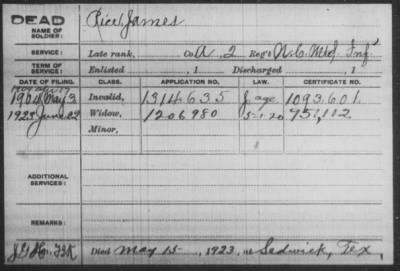 DEAD
NAME OF SOLDIER:
Rice, James
SERVICE:
Late rank, Co A, 2 Reg't N.C. Mtd Inf
TERM OF SERVICE:
Enlisted , 1 Discharged , 1
DATE OF FILING. CLASS. APPLICATION NO. LAW. CERTIFICATE NO.
1904 May 3 Invalid, 1314635 age 1093601
1923 June 22 Widow, 1206980 5-1-20 951,112
Minor,
ADDITIONAL SERVICES:
REMARKS:
Died May 15, 1923, at Sedwick, Tex,